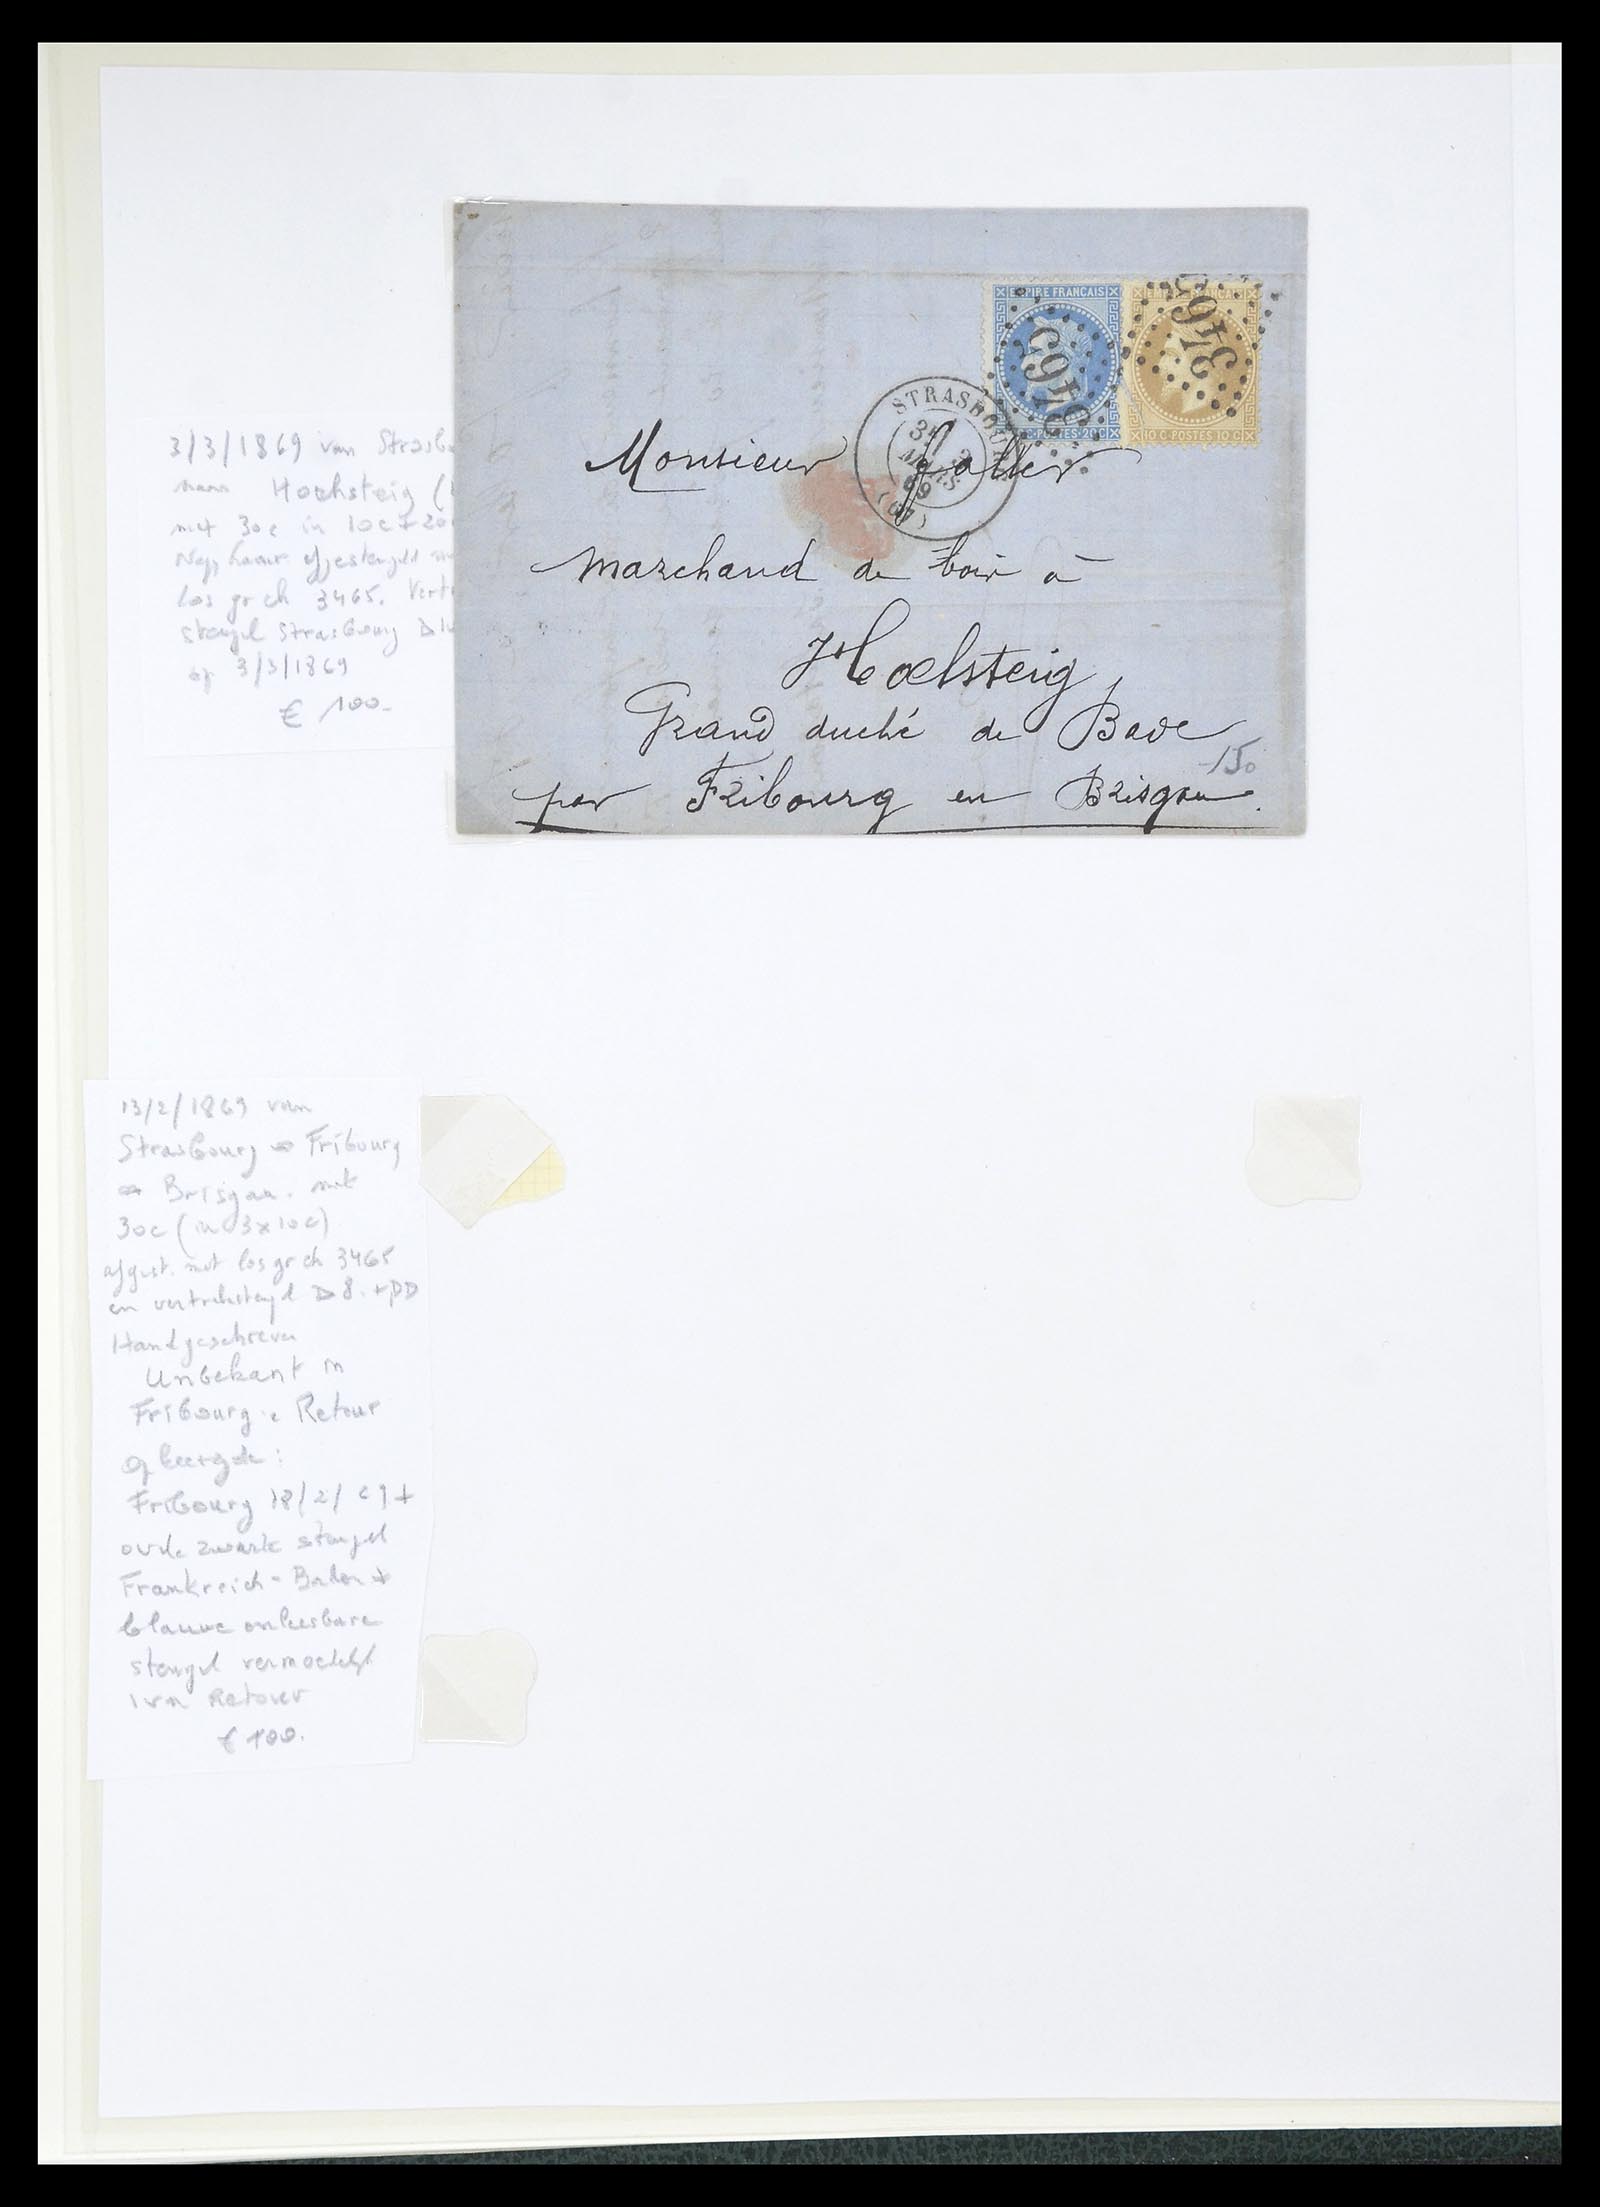 EMPIRE FRANCAIS
EMPIRE FRANCAIS
3465
3465
C·POSTES·20C
10 C·POSTES 10 C
STRASBOURG
3E
MARS
69
(67)
Monsieur
Marchand de bois à
Hoelsteig
Grand duché de Bade
150
par Fribourg en Brisgau
3/3/1869 van Strasb
naar Hochsteig (
met 30c in 10c + 20
los gr ch 3465. Vert
stempel Strasbourg
op 3/3/1869
€ 100-
13/2/1869 van
Strasbourg Fribourg
Brisgau. met
30c (in 3x10c)
afgest. met los gr ch 3465
en vertrekstempel D 8. + PD
Handgeschreven
Unbekant in
Fribourg Retour
Op keerzijde:
Fribourg 18/2/69 +
oude zwarte stempel
Frankreich - Baden +
blauwe onleesbare
stempel vermoedelijk
van Retour
€ 100.